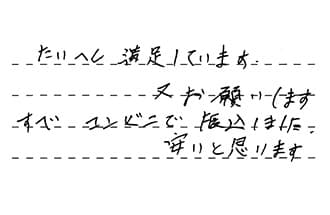 たいへん満足しています.
又お願いします
すべ コンビニで 振込ました.
安いと思います